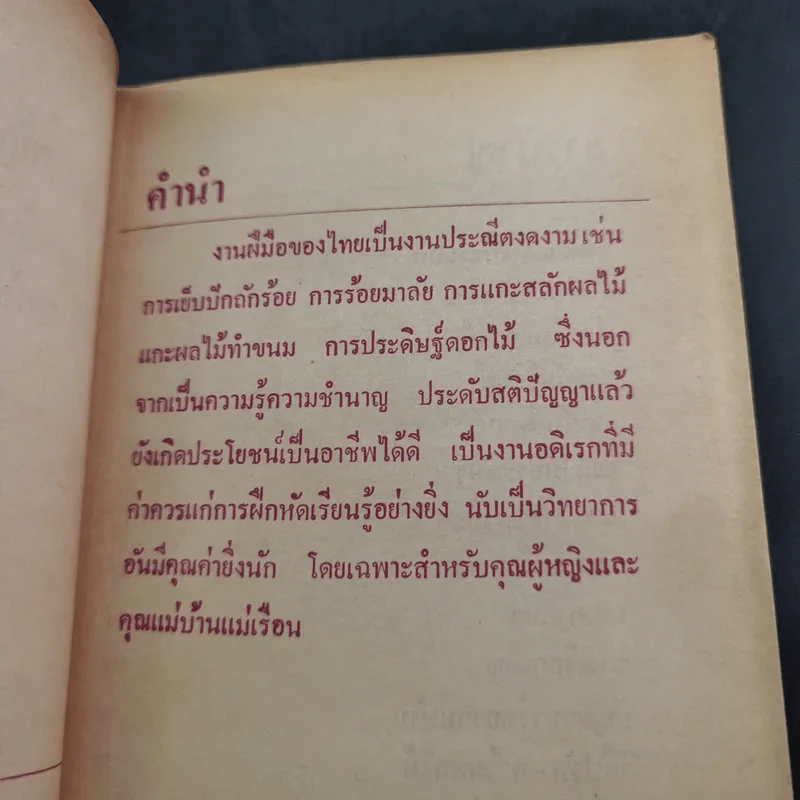 คำนำ
งานฝีมือของไทยเป็นงานประณีตงดงาม เช่น
การเย็บปักถักร้อย การร้อยมาลัย การแกะสลักผลไม้
แกะผลไม้ทำขนม การประดิษฐ์ดอกไม้ ซึ่งนอก
จากเป็นความรู้ความชำนาญ ประดับสติปัญญาแล้ว
ยังเกิดประโยชน์เป็นอาชีพได้ดี เป็นงานอดิเรกที่มี
ค่าควรแก่การฝึกหัดเรียนรู้อย่างยิ่ง นับเป็นวิทยาการ
อันมีคุณค่ายิ่งนัก โดยเฉพาะสำหรับคุณผู้หญิงและ
คุณแม่บ้านแม่เรือน